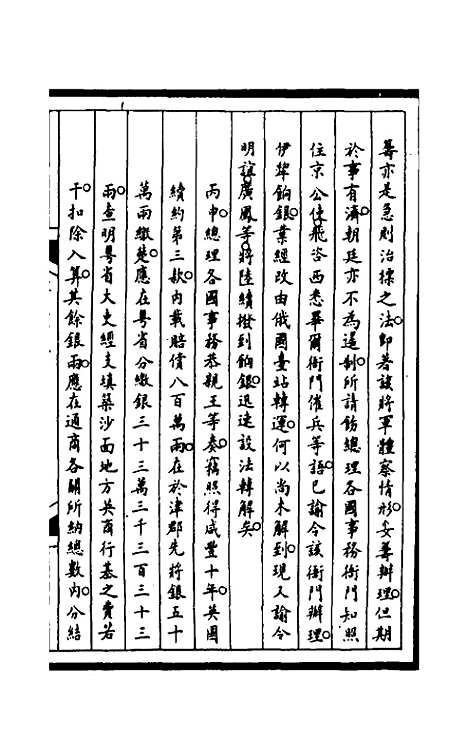 籌亦是急則治標之法即著該將軍體察情形妥籌辦理但期
於事有濟朝廷亦不為遥制所請飭總理各國事務衙門知照
住京公使飛咨西悉畢爾衙門催兵等語已諭令該衙門辦理
伊犂餉銀業經改由俄國臺站轉運何以尚未解到現又諭令
明誼廣鳳等將陸續撥到餉銀迅速設法轉解矣
丙申總理各國事務恭親王等奏竊照得咸豐十年英國
續約第三款內載賠償八百萬兩在於津郡先將銀五十
萬兩繳楚應在粤省分繳銀三十三萬三千三百三十三
兩查明粤省大吏經支填築沙面地方英商行基之費若
干扣除入算其餘銀兩應在通商各關所納總數內分結